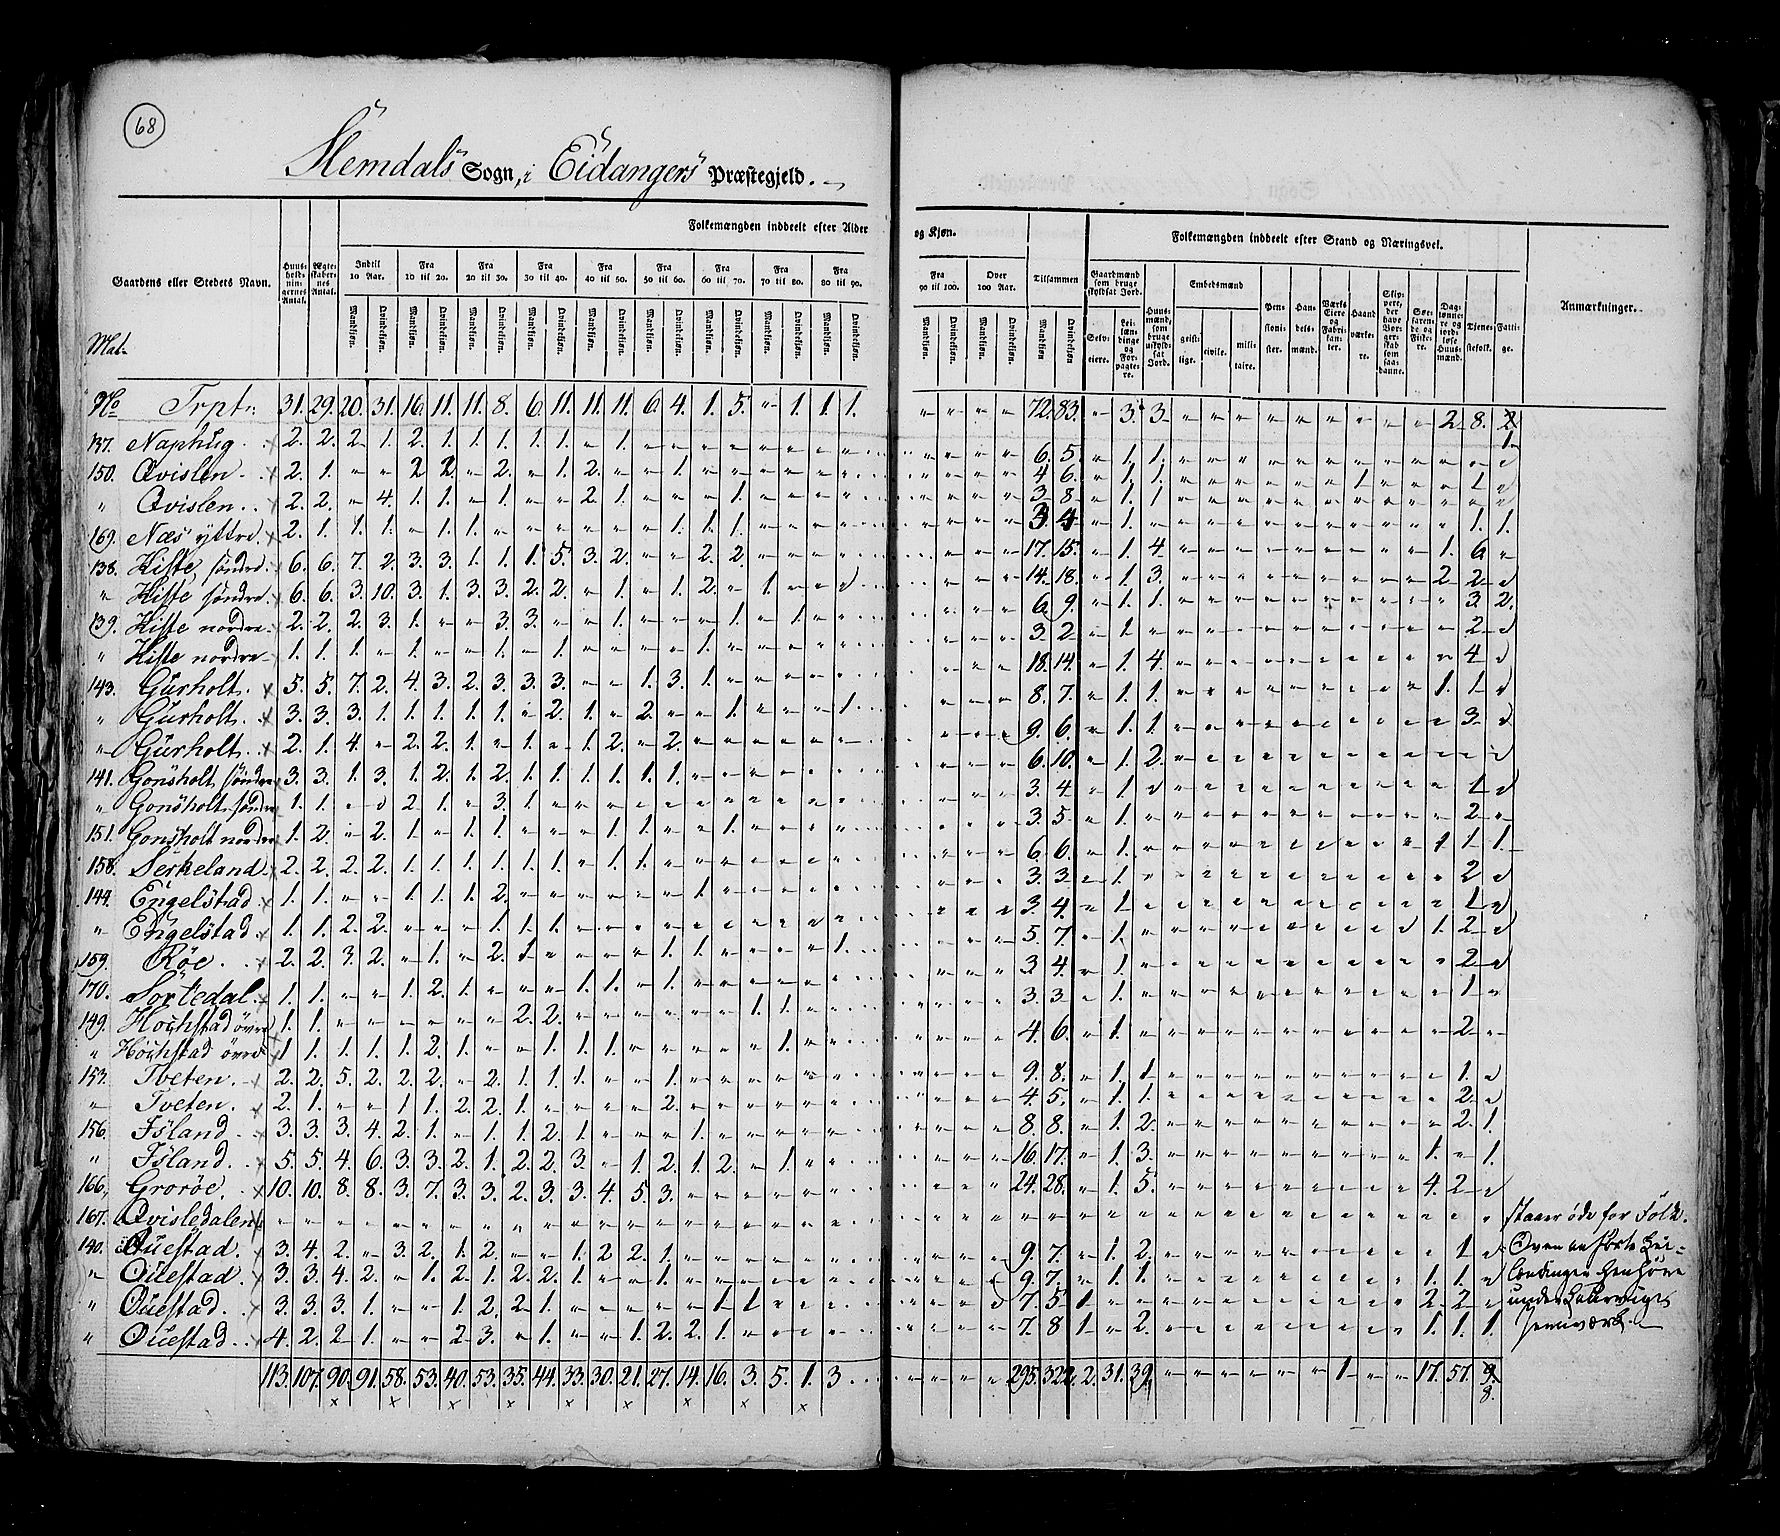 68
Slemdals Sogn, i Eidangers Præstegjeld.
Folkemængden inddeelt efter Alder og Kjøn. Folkemængden inddeelt efter Stand og Næringsvei.
Gaardens eller Stedets Navn. Huusholdningernes Antal. Ægteskabernes Antal. Indtil 10 Aar. Fra 10 til 20. Fra 20 til 30. Fra 30 til 40. Fra 40 til 50. Fra 50 til 60. Fra 60 til 70. Fra 70 til 80. Fra 80 til 90. Fra 90 til 100. Over 100 Aar. Tilsammen Gaardmænd som bruge skyldsat Jord. Huusmænd, som bruge uskyldsat Jord. Embedsmænd Pensionister. Handelsmænd. Værkseiere og Fabrikanter. Haandværkere. Skippere, der have Borgerskab som saadanne. Søefarende og Fiskere. Dagslønnere og jordløse Huusmænd. Tjenestefolk. Fattige. Anmærkninger.
Mandkjøn. Qvindekjøn. Selveiere. Leilændinge og Forpagtere. geistlige. civile. militaire.
Mat-
No Trpt: 31. 29. 20. 31. 16. 11. 11. 8. 6. 11. 11. 11. 6. 4. 1. 5. " 1. 1. 1. " " " " 72. 83. " 3. 3. " " " " " " " " " 2. 8. 2
137. Naphug. 2. 2. 2. 1. 2. 1. 1. 1. 1. 1. " 1. 6. 5. " 1. 1. 1
150. Qvislen. 2. 1. " " 2 2. " 2. " 1. 2. " " 1. 4. 6. " 1. 1. 1 1
" Qvislen. 2. 2. " 4. 1. 1. " 1. " " 2. 1. " " " 1. 3. 8. " 1. 1
169. Næs yttre. 2. 1. 1. 1. " 1. 1. " " " " " " 1. 1. 1. 3. 4. " 1. 1. 1.
138. Histe søndre. 6. 6. 7. 2. 3. 3. 1. 1. 1. 5. 3. 2. " " 2. 2. 17. 15. " 1. 4. 1. 6. "
" Histe søndre. 6. 6. 3. 10. 3. 1. 3. 3. 2. 2. " 1. " 1. 2. " 1. 14. 18. " 1. 3. 2. 2.
139. Histe nordre. 2. 2. 2. 3. 1. " " 3. 3. " " 1. " " " 1. " 1. 6. 9. " 1. 1. 3. 2.
" Histe nordre. 1. 1. 1. " 1. " " 1. " 1. " " " " 1. 3. 2. " 1. 2.
143. Gurholt. 5. 5. 7. 2. 4. 3. 2. 3. 3. 3. " " 1. 3. 1. 18. 14. " 1. 4. 4.
" Gurholt. 3. 3. 3. 1. 1. 1. 1. 1. " 2. 1. " 2. " " 1. " " " 1. 8. 7. " 1. 1. 1. 1.
" Gurholt. 2. 1. 4. " 2. 2. 1. " 1. " 1. 2. " 2. 9. 6. " 1. 1. 3.
141. Gonsholt søndre 3. 3. 1. 3. 1. 2. 1. 2. 1. 1. 1. 1. 1. 1. 6. 10. " 1. 2.
" Gonsholt søndre 1. 1. " " 2. 1. " 3. 1. 3. 4. " 1. 1
151. Gonsholt nordre 1. 2. " 2. 1. " 1. 1. " " " 1. 1. " " 1. 3. 5. " 1. 2. "
158. Serkeland. 2. 2. 2. 2. 1. 1. 1. 1. 1. 1. " 1. 1. 6. 6. " 1. 1 1. 1.
144. Engelstad 1. 1. " " 1. 1. 1. 2. " " " " " " 1. 3. 3. " 1. 2
" Engelstad. 1. 1. 2. 2. " " " 1. 1. 1. 3. 4. " 1. 1
159. Röe. 2. 2. 3. 2. " 1. " 2. 1. " " " " 1. 1. " " " " 1. 5. 7. " 1. 1. 2.
170. Sortedal. 1. 1. " " 1. 2. 1. " " " 1. 1. " 1. 3. 4. " 1. 2.
149. Hochstad övre 1. 1. " " " " " " 2. 2. " " " " " " 1. 1. 3. 3. " 1. 1. "
" Hochstad övre 1 1. 1. 1. 1. 2. 1. " " 1. 1. 1. " " " " " 1. 4. 6. " 1. 2. "
153. Tveten. 2. 2. 5. 2. 2. 2. " 2. 1. 1. 1. " " 1. 9. 8. " 1. 1. 1.
" Tveten. 2. 1. " " 1. 1. 2. 2. 1. " " " " 2. 4. 5. " 1. 1. 2.
156. Island. 3. 3. 3. 4. 2. 1. " 1. 1. 2. 1. " " " 1. 8. 8. " 1. 2. 2. 1.
" Island. 5. 5. 4. 6. 3. 3. 2. 1. 2. 2. 3. " 1. 2. 1. 2. " 1. 16. 17. " 1. 3. 1. " 1.
166. Groröe. 10. 10. 8. 8. 3. 7. 3. 3. 2. 3. 3. 4. 5. 3. 24. 28. " 1. 5. 4. 2.
167. Qvistedalen " " " staaer øde for Folk.
140. Ouestad. 3. 4. 2. " 3. 2. 1. 2. " " 1. 2 2. 1. 9. 7. " 1. 2. 1
" Ouestad. 3. 3. 4. 2. " 1. 2. 1. 2. 2. 1. " " 1. 9. 7. " 1. 1. 1. 1.
" Ouestad. 3. 3. 3. 1. " " 1. 2. 2. 1. " " " " 1. 1. 7. 5. 1 2. 2.
" Ouestad. 4. 2. 2. 1. " " 2. 3. " 1. " " 1. 2. 2. 1. 7. 8. 1 " 2. 1. 1. 1.
under
113. 107. 90. 91. 58. 53. 40. 53. 35. 44. 33. 30. 21. 27. 14. 16. 3. 5. 1. 3 295. 322. 2. 31. 39. 1 17. 57. 9.
8.